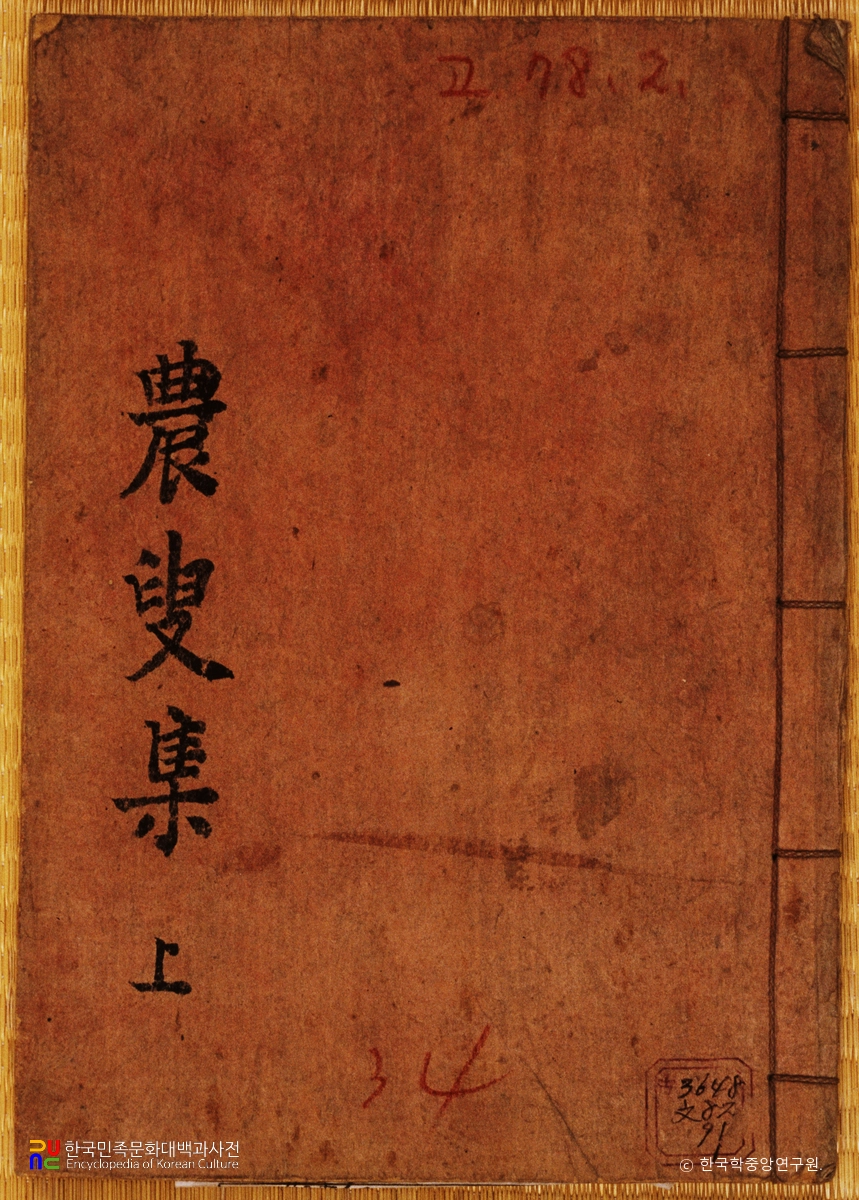 고 78.2.
農叟集 上
34
3648
한국민족문화대백과사전
Encyclopedia of Korean Culture
© 한국학중앙연구원